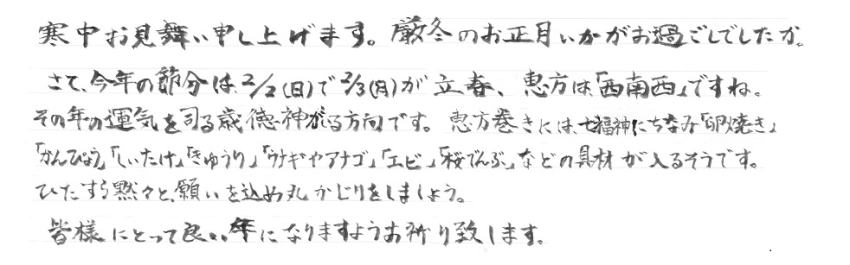 寒中お見舞い申し上げます。厳冬のお正月いかがお過ごしでしたか。
さて、今年の節分は2/2(日)で2/3(月)が立春、恵方は「西南西」ですね。
その年の運気を司る歳徳神がいる方向です。恵方巻きには、七福神にちなみ「卵焼き」
「かんぴょう」「しいたけ」「きゅうり」「ウナギやアナゴ」「エビ」「桜でんぶ」などの具材が入るそうです。
ひたすら黙々と、願いを込め丸かじりをしましょう。
皆様にとって良い年になりますようお祈り致します。